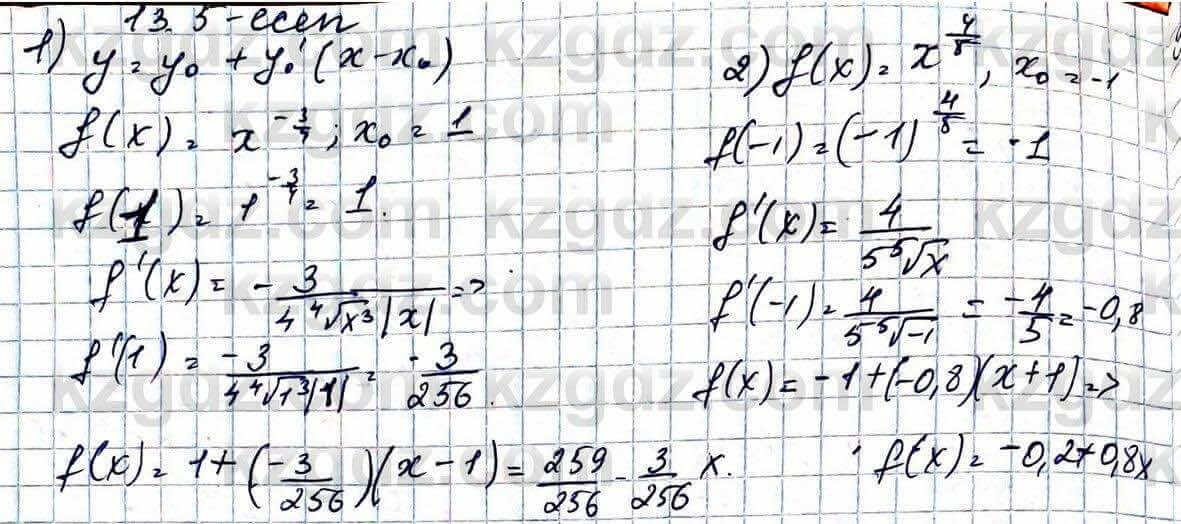 13.5-есеп
1) y = y₀ + y₀'(x-x₀)
f(x) = x^(-3/4); x₀ = 1
f(1) = 1^(-3/4) = 1.
f'(x) = -3/(4 ⁴√x³|x|) =>
f'(1) = -3/(4 ⁴√1³|1|) = -3/256.
f(x) = 1+(-3/256)(x-1) = 259/256 - 3/256 x.
2) f(x) = x^(4/5), x₀ = -1
f(-1) = (-1)^(4/5) = -1
f'(x) = 4/(5 ⁵√x)
f'(-1) = 4/(5 ⁵√-1) = -4/5 = -0,8
f(x) = -1+(-0,8)(x+1) =>
f(x) = -0,2+0,8x
kzgdz.com